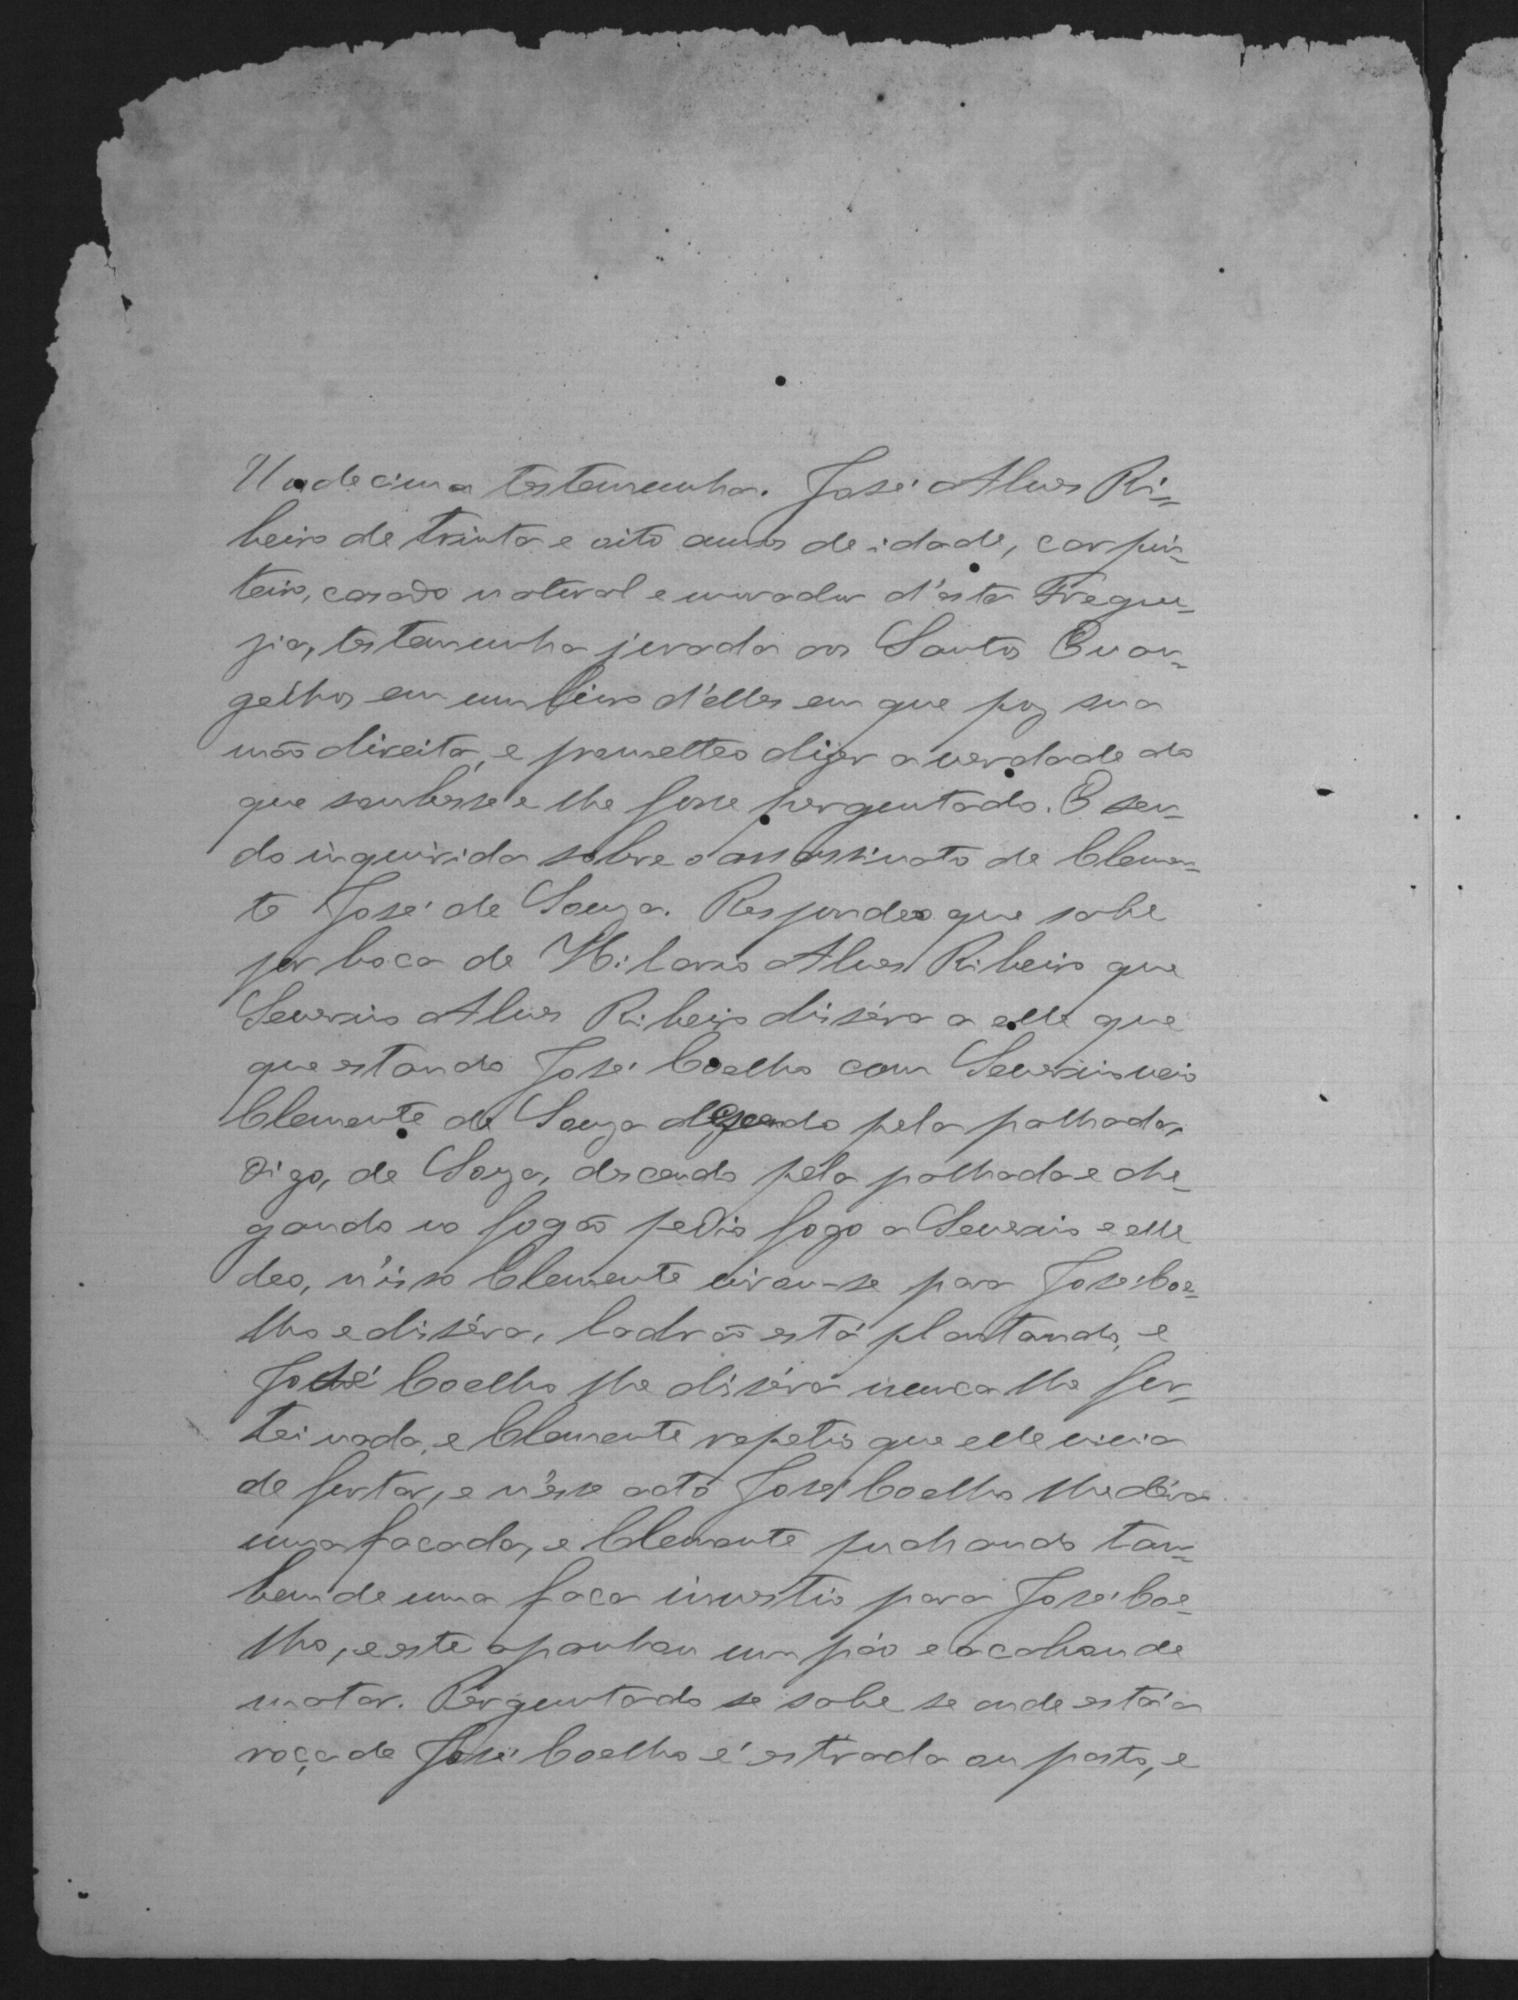 Undecima testemunha. José Alves Ri-
beiro de trinta e oito annos de idade, carpin-
teiro, casado natural e morador d'esta Fregue-
zia, testemunha jurada aos Santos Evan-
gelhos em um livro d'elles em que poz sua
mão direita, e prometteo dizer a verdade do
que soubesse e lhe fosse perguntado. E sen-
do inquirida sobre o assassinato de Clemen-
te José de Souza. Respondeo que sabe
por boca de Hilario Alves Ribeiro que
Severino Alves Ribeiro diséra a elle que
que estando José Coelho com Severino veio
Clemente de Souza descendo pela palhada,
digo, de Souza, descendo pela palhada e che-
gando no fogão pedio fogo a Severino e elle
deo, n'isso Clemente virou-se para José Coe-
lho e diséra, ladrão está plantando, e
José Coelho lhe diséra nunca lhe fur-
tei nada, e Clemente repetio que elle vivia
de furtar, e n'esse acto José Coelho lhe déra
uma facada, e Clemente puchando tam-
bem de uma faca investio para José Coe-
lho, e este apanhou um páo e acabou de
matar. Perguntado se sabe se onde está a
roça de José Coelho é estrada ou pasto, e